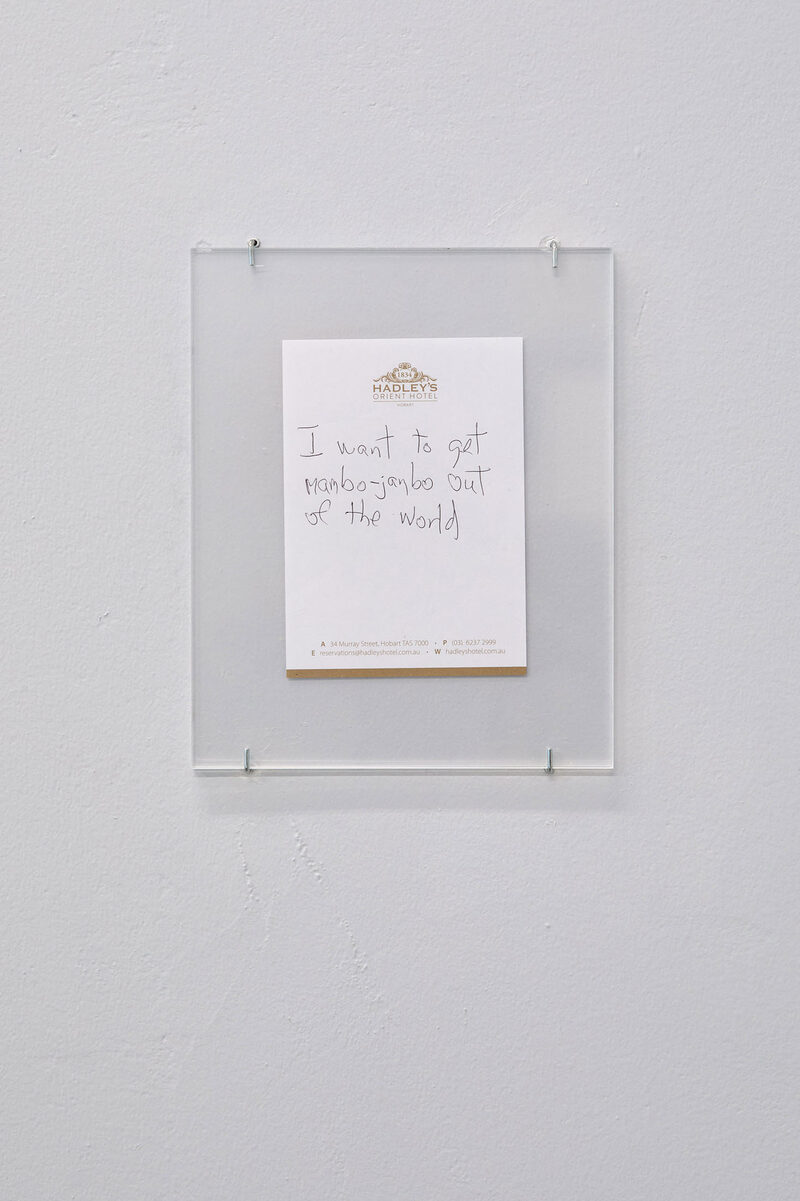 1834
HADLEY'S
ORIENT HOTEL
HOBART
I want to get
mambo-jambo out
of the world
A 34 Murray Street, Hobart TAS 7000 • P (03) 6237 2999
E reservations@hadleyshotel.com.au • W hadleyshotel.com.au